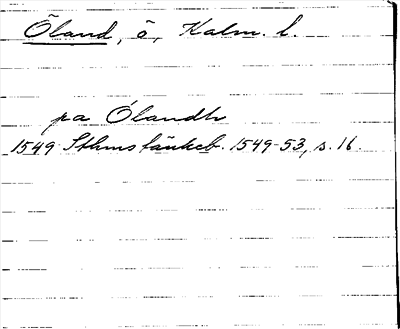 Öland, ö, Kalm. l.
pa Ölandh
1549 Sthms tänkeb. 1549-53, s. 16.